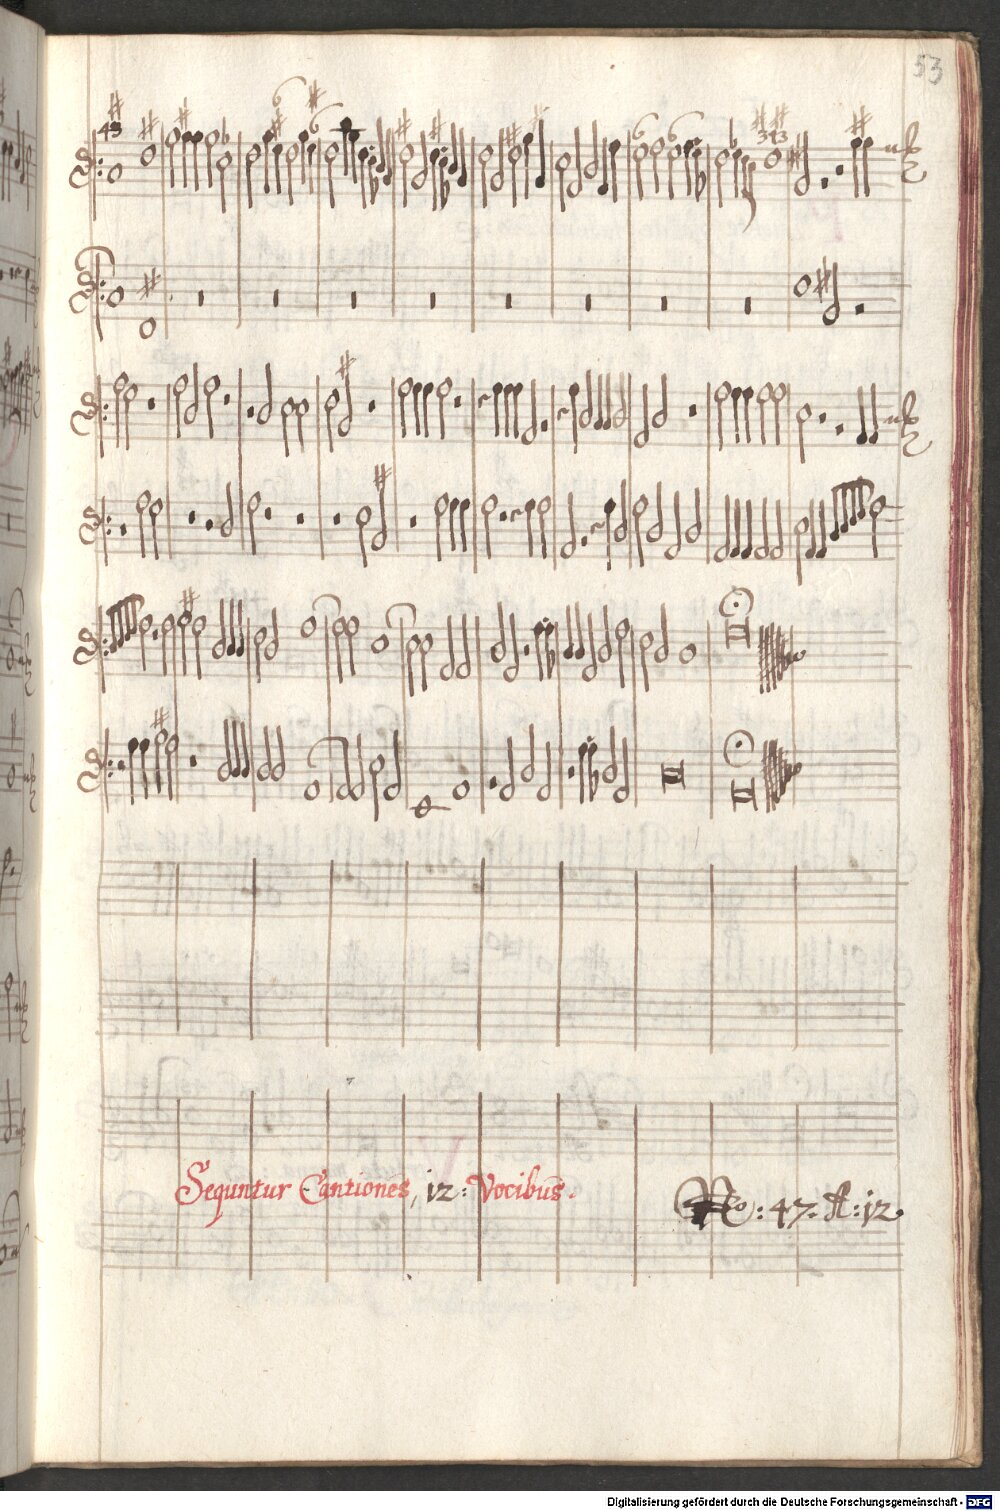 53
43
6
6
343
6
6
Sequntur Cantiones, 12: Vocibus.
No: 47. A: 12.
Digitalisierung gefördert durch die Deutsche Forschungsgemeinschaft - DFG